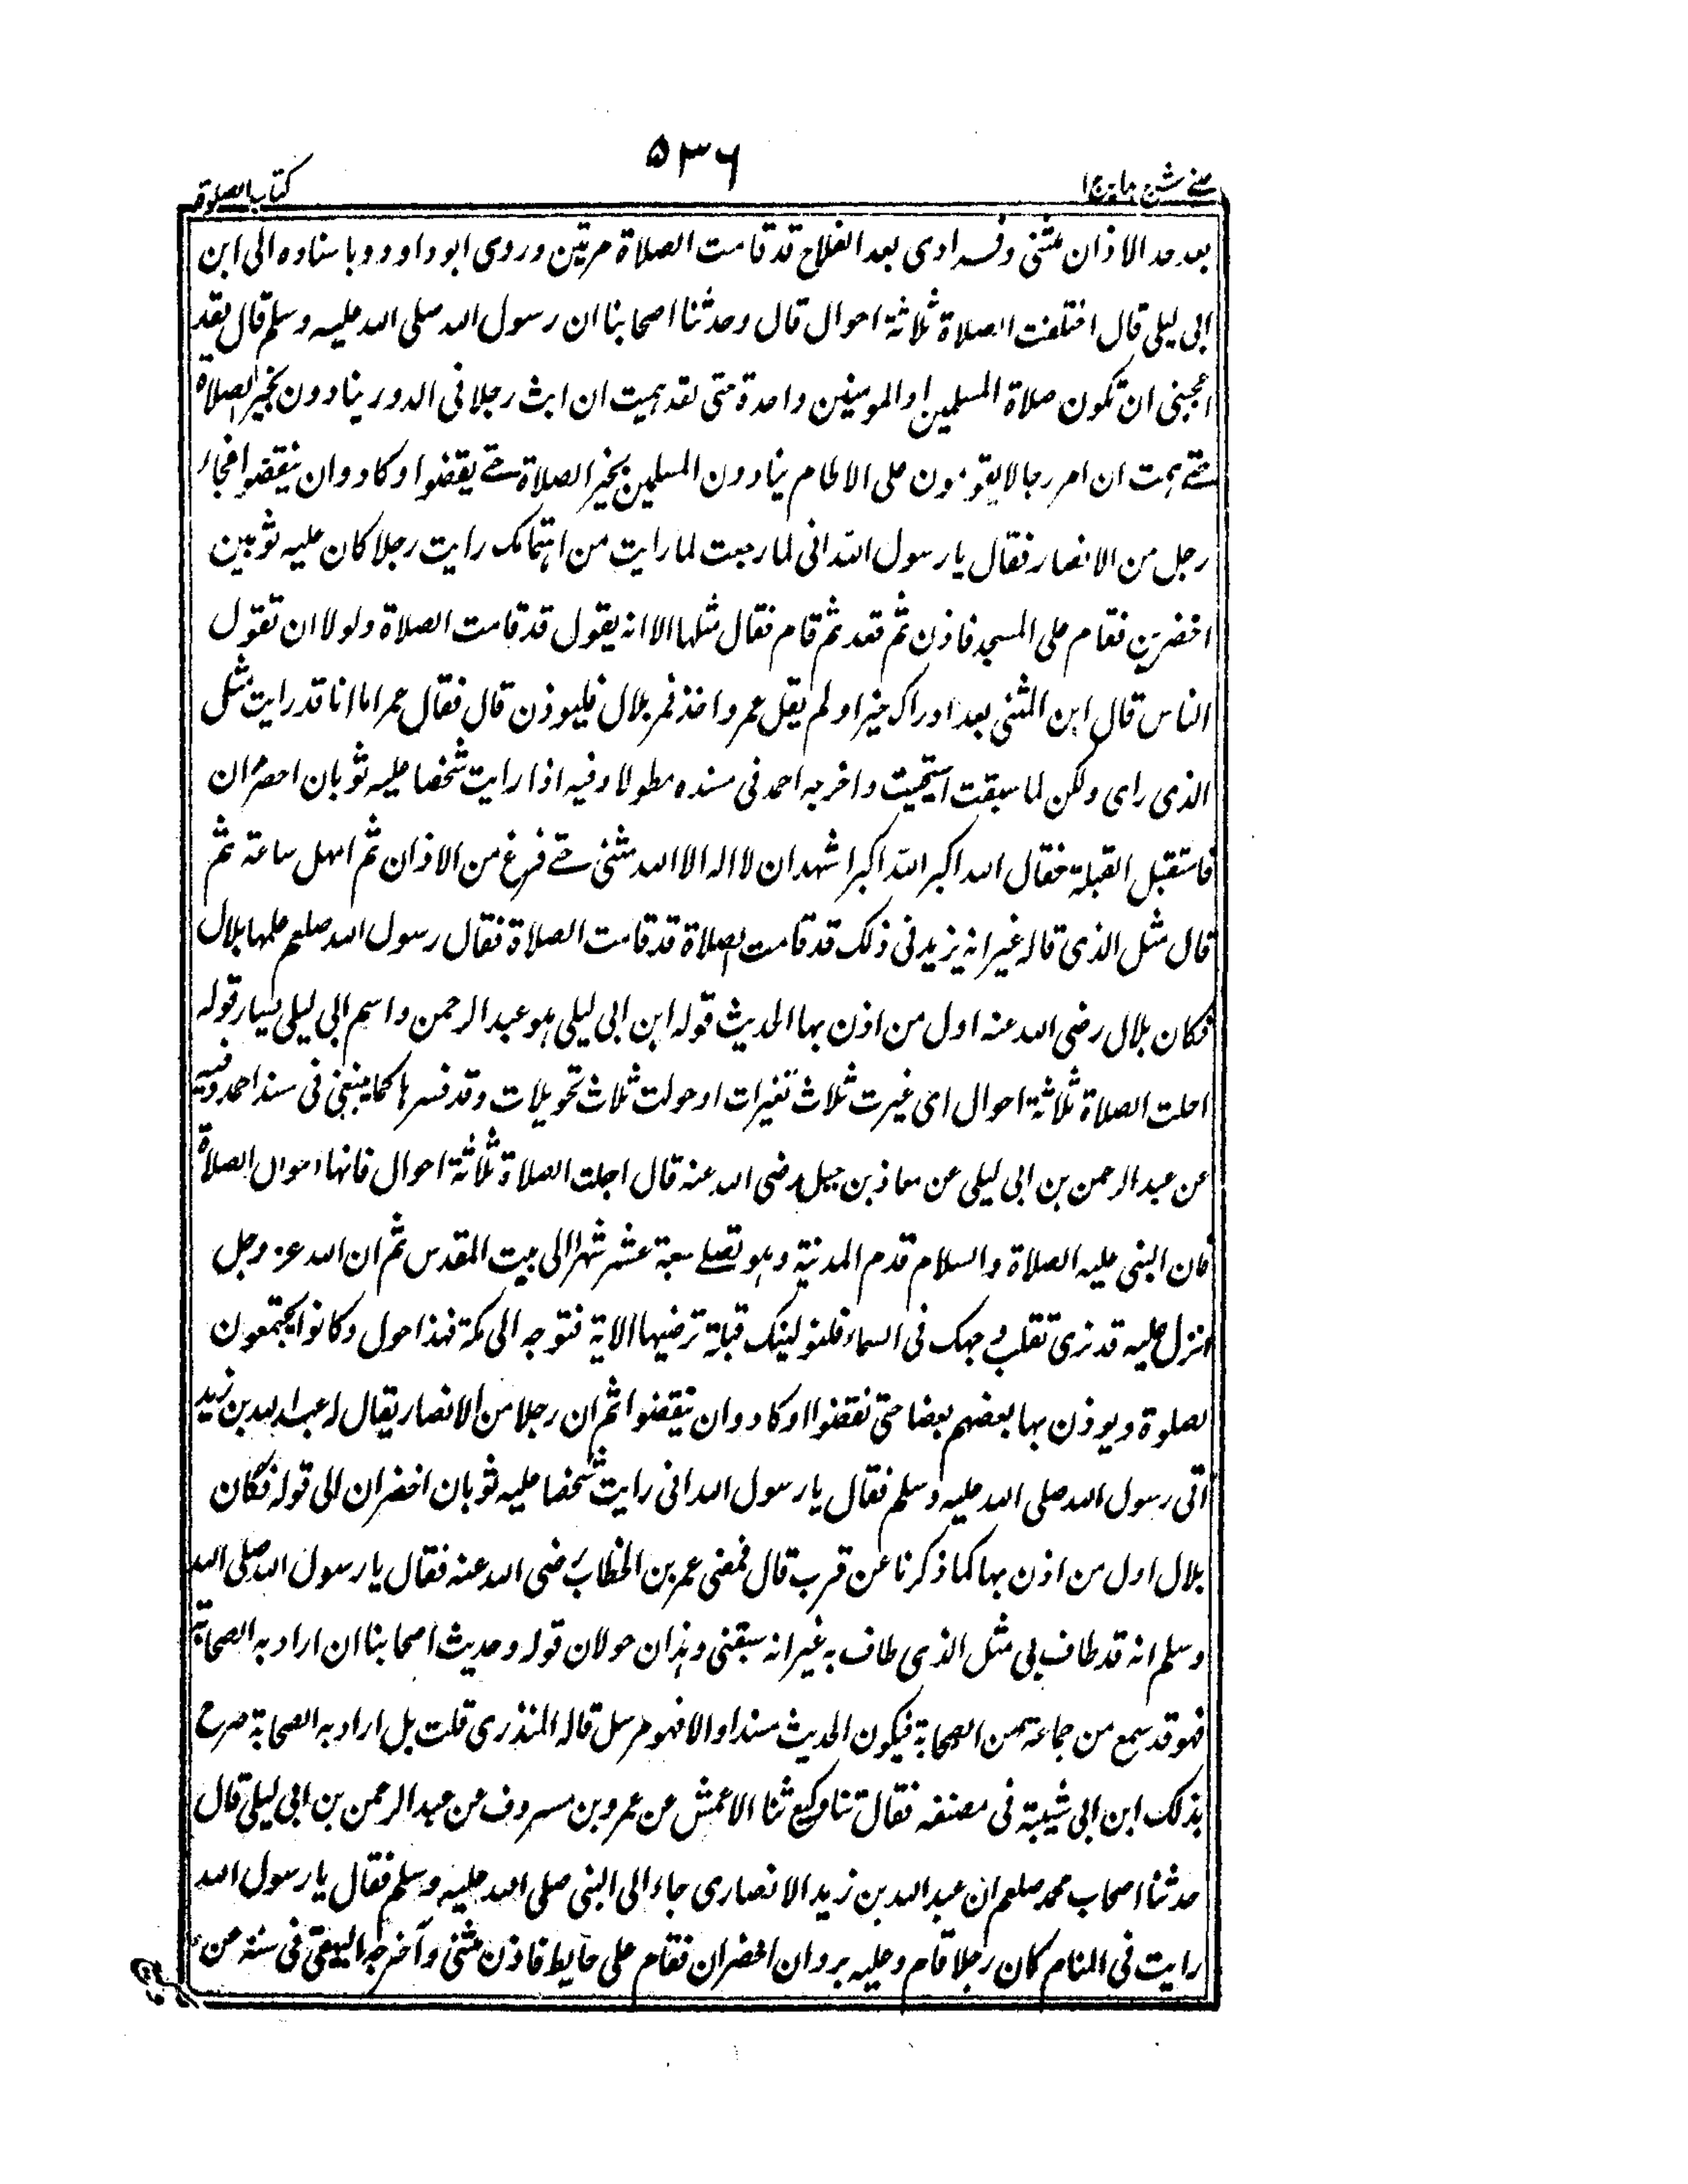 ۵۳۶
كتاب الصلوة
بعد عد الاذان مثنى وفرادى بعد الفلاح قد قامت الصلاة مرتين وروى ابو داوود باسناده الى ابن
ابى ليلى قال اختلفت الصلاة ثلاثة احوال قال وحدثنا اصحابنا ان رسول الله صلى الله عليه وسلم قال لقد
اعجبنى ان تكون صلاة المسلمين او المومنين واحدة حتى لقد هميت ان ابث رجلا فى الدور ينادون بخير الصلاة
حتے همت ان امر رجالا يقومون على الاطام ينادون المسلمين بخير الصلاة حتے يقضوا وكادوا ان ينقضوا فجاء
رجل من الانصار فقال يا رسول الله انى لما رجعت لما رايت من اهتمامك رايت رجلا كان عليه ثوبين
اخضرين فقام على المسجد فاذن ثم قعد ثم قام فقال مثلها الا انه يقول قد قامت الصلاة ولولا ان تقول
الناس قال ابن المثنى بعد اوراك خيرا ولم يقل عمرو اخذ فمر بلال فليوذن قال فقال عمر اما انا قد رايت مثل
الذى راى ولكن لما سبقت استحييت واخرجه احمد فى مسنده مطولا وفيه اذا رايت شخصا عليه ثوبان اخضران
فاستقبل القبلة فقال الله اكبر الله اكبر اشهد ان لا اله الا الله مثنى حتے فرغ من الاذان ثم امهل ساعة ثم
قال مثل الذى قاله غير انه يزيد فى ذلك قد قامت الصلاة قد قامت الصلاة فقال رسول الله صلعم علمها بلال
فكان بلال رضى الله عنه اول من اذن بها الحديث قوله ابن ابى ليلى هو عبد الرحمن واسم ابى ليلى يسار قوله
احلت الصلاة ثلاثة احوال اى غيرت ثلاث تغيرات او حولت ثلاث تحويلات وقد فسرها كما ينبغى فى سند احمد وفيه
عن عبد الرحمن بن ابى ليلى عن معاذ بن جبل رضى الله عنه قال احلت الصلاة ثلاثة احوال فانها احوال الصلاة
فان النبى عليه الصلاة والسلام قدم المدينة وهو تصلے سبعة عشر شهرا الى بيت المقدس ثم ان الله عز وجل
انزل عليه قد نرى تقلب وجهك فى السماء فلنولينك قبلة ترضيها الاية فتوجه الى مكة فهذا حول وكانوا يجتمعون
لصلوة ويوذن بها بعضهم بعضا حتى نقضوا او كادوا ان ينقضوا ثم ان رجلا من الانصار يقال له عبد الله بن زيد
اتى رسول الله صلى الله عليه وسلم فقال يا رسول الله انى رايت شخصا عليه ثوبان اخضران الى قوله فكان
بلال اول من اذن بها كما ذكرنا عن قرب قال فمضى عمر بن الخطاب رضى الله عنه فقال يا رسول الله صلى الله
وسلم انه قد طاف بى مثل الذى طاف به غير انه سبقنى وهذان حولان قوله وحديث اصحابنا ان اراد به الصحابة
فهو قد سمع من جماعة من الصحابة فيكون الحديث مسندا والا فهو مرسل قاله المنذرى قلت بل اراد به الصحابة صرح
بذلك ابن ابى شيبة فى مصنفه فقال ثنا وكيع ثنا الاعمش عن عمرو بن مسروف عن عبد الرحمن بن ابى ليلى قال
حدثنا اصحاب محمد صلعم ان عبد الله بن زيد الانصارى جاء الى النبى صلى الله عليه وسلم فقال يا رسول الله
رايت فى المنام كان رجلا قام وعليه بردان اخضران فقام على حايط فاذن مثنى وأخرجه البيهقى فى سننه عن